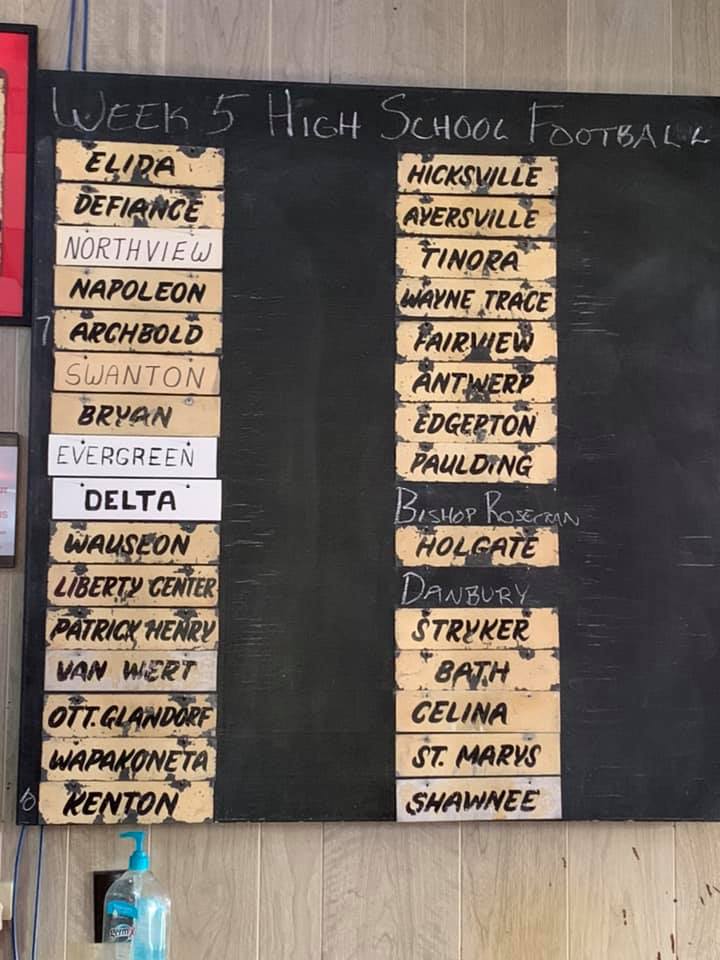 WEEK 5 HIGH SCHOOL FOOTBALL
ELIDA
DEFIANCE
NORTHVIEW
NAPOLEON
7
ARCHBOLD
SWANTON
BRYAN
EVERGREEN
DELTA
WAUSEON
LIBERTY CENTER
PATRICK HENRY
VAN WERT
OTT. GLANDORF
WAPAKONETA
KENTON
HICKSVILLE
AYERSVILLE
TINORA
WAYNE TRACE
FAIRVIEW
ANTWERP
EDGERTON
PAULDING
BISHOP ROSECRAN
HOLGATE
DANBURY
STRYKER
BATH
CELINA
ST. MARYS
SHAWNEE